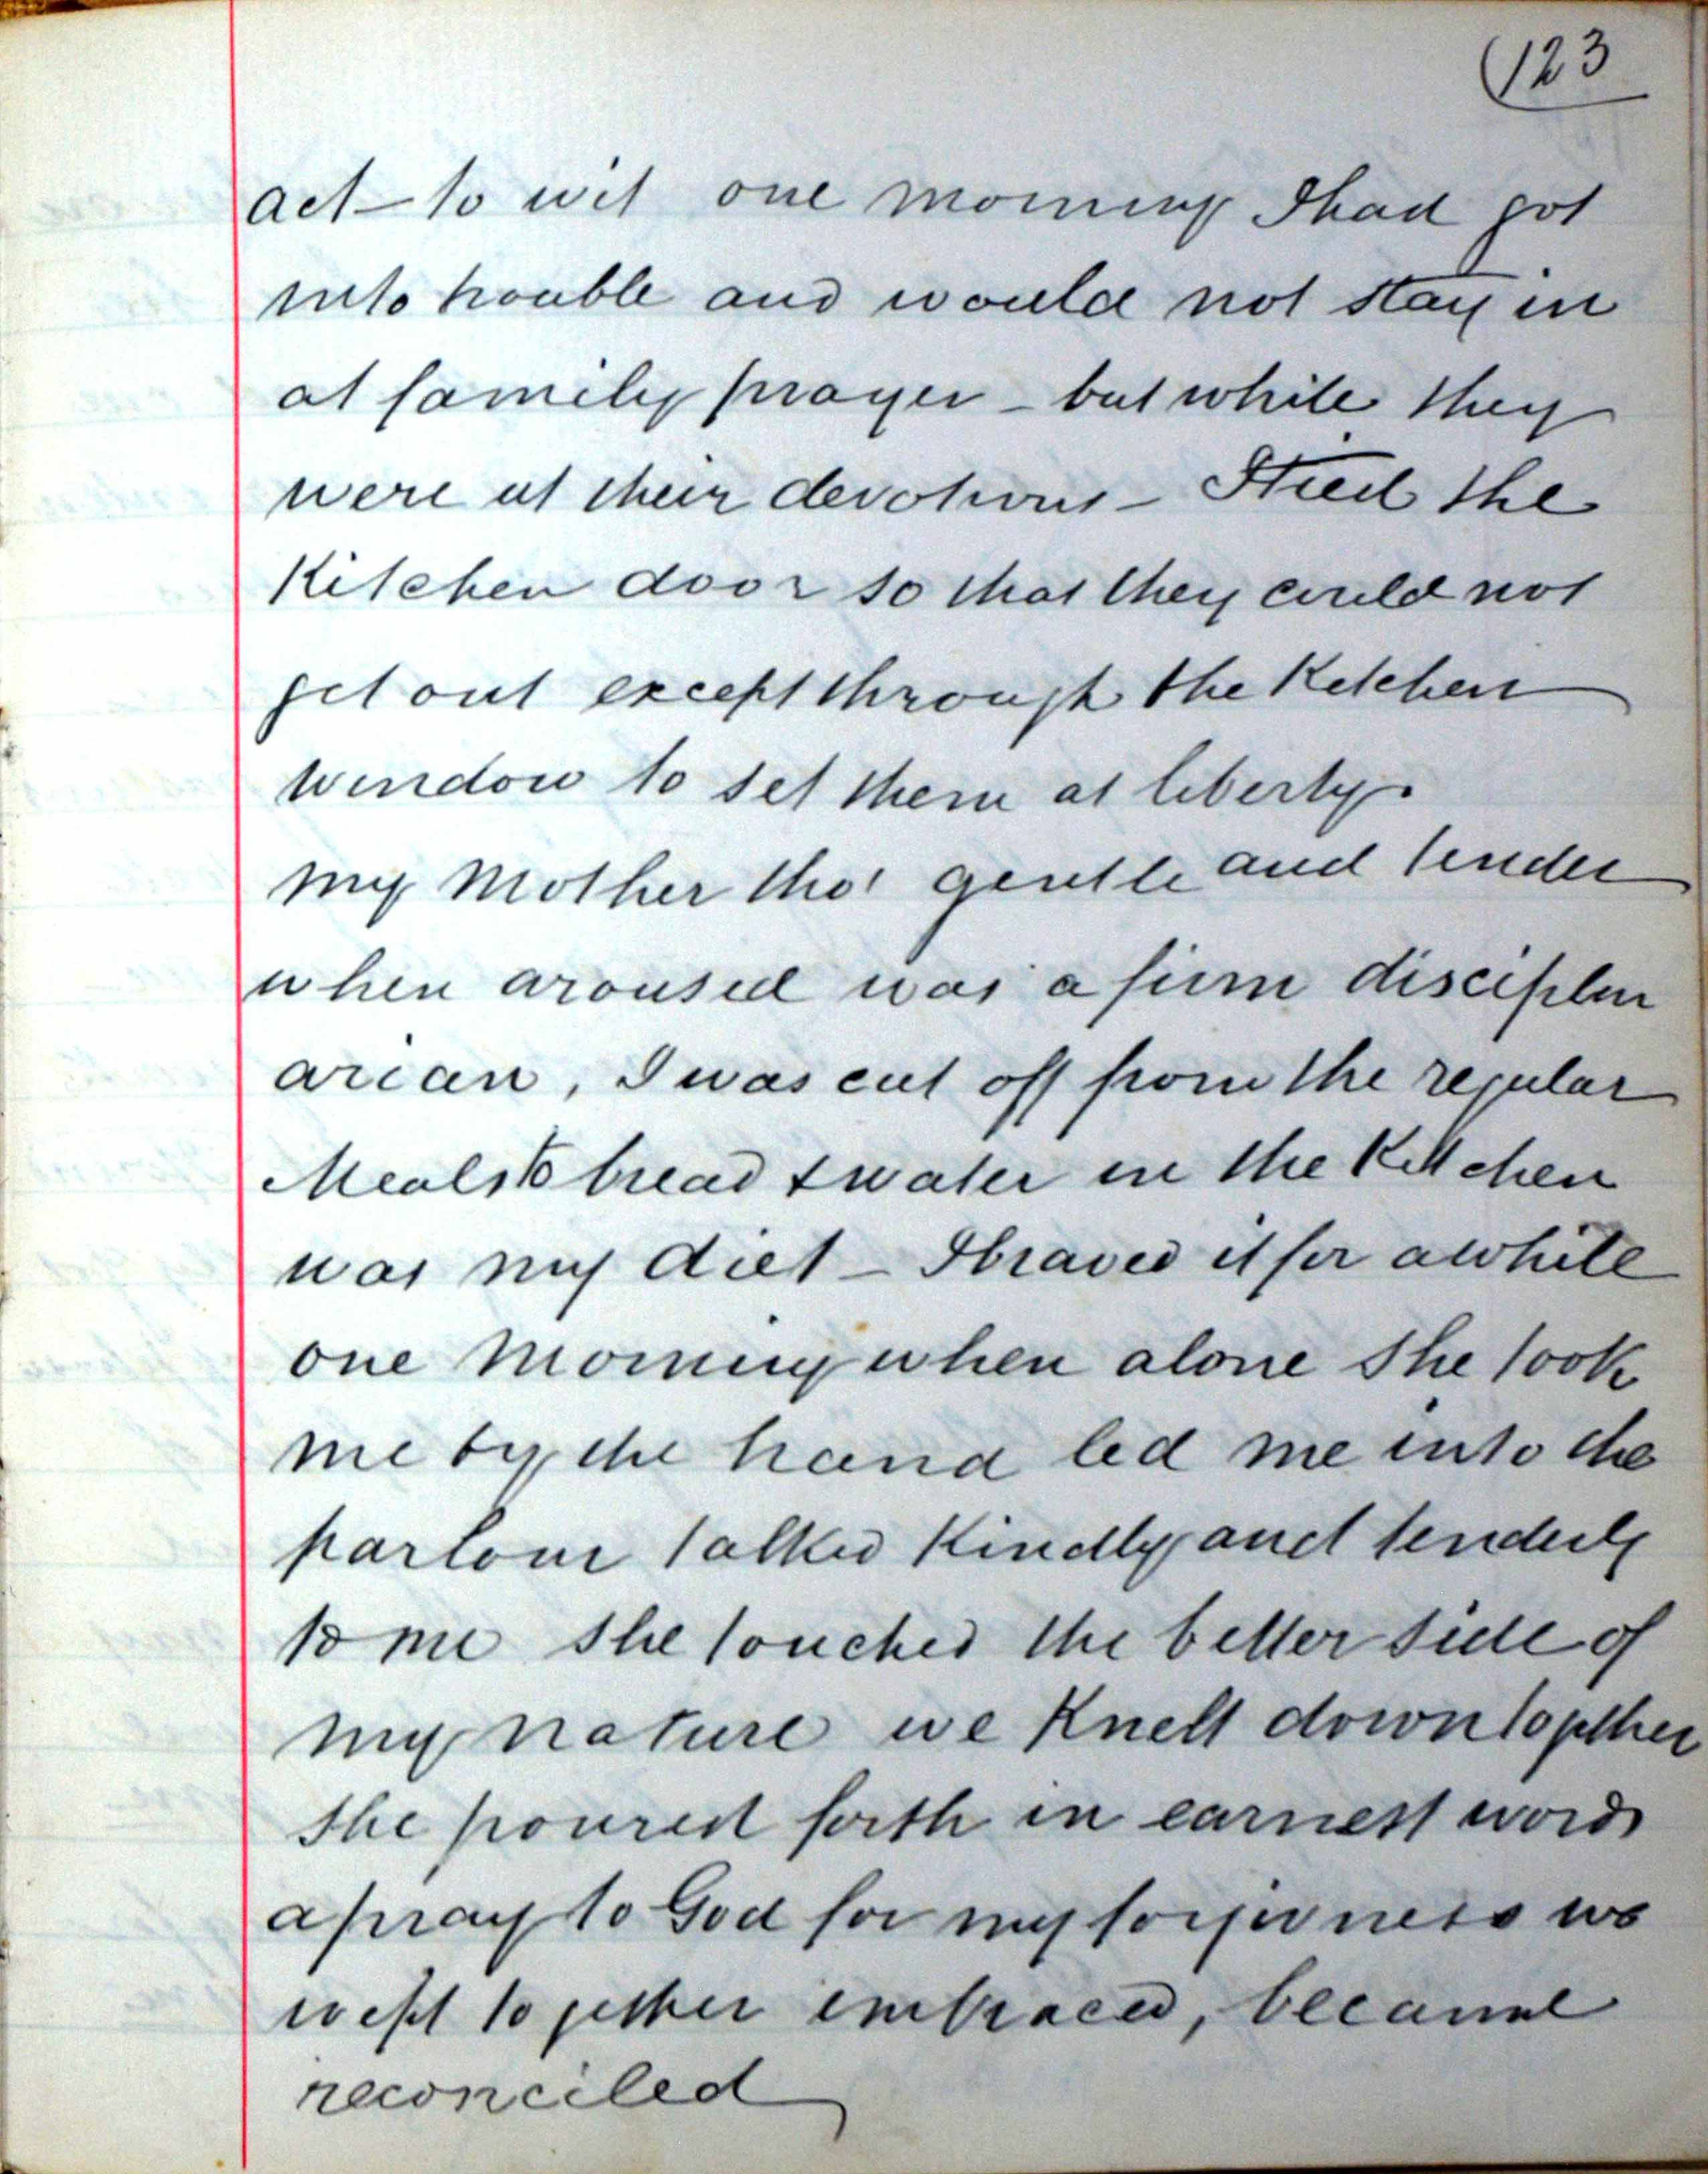 (123
act - to wit one morning I had got
into trouble and would not stay in
at family prayer - but while they
were at their devotions - I tied the
Kitchen door so that they could not
get out except through the Kitchen
window to set them at liberty.
my Mother tho' gentle and tender
when aroused was a firm disciplin
arian, I was cut off from the regular
Meals to bread & water in the Kitchen
was my diet - I braved it for awhile
one morning when alone she took
me by the hand led me into the
parlour talked Kindly and tenderly
to me she touched the better side of
my nature we Knelt down together
she poured forth in earnest words
a pray to God for my forgivness we
wept together embraced, became
reconciled